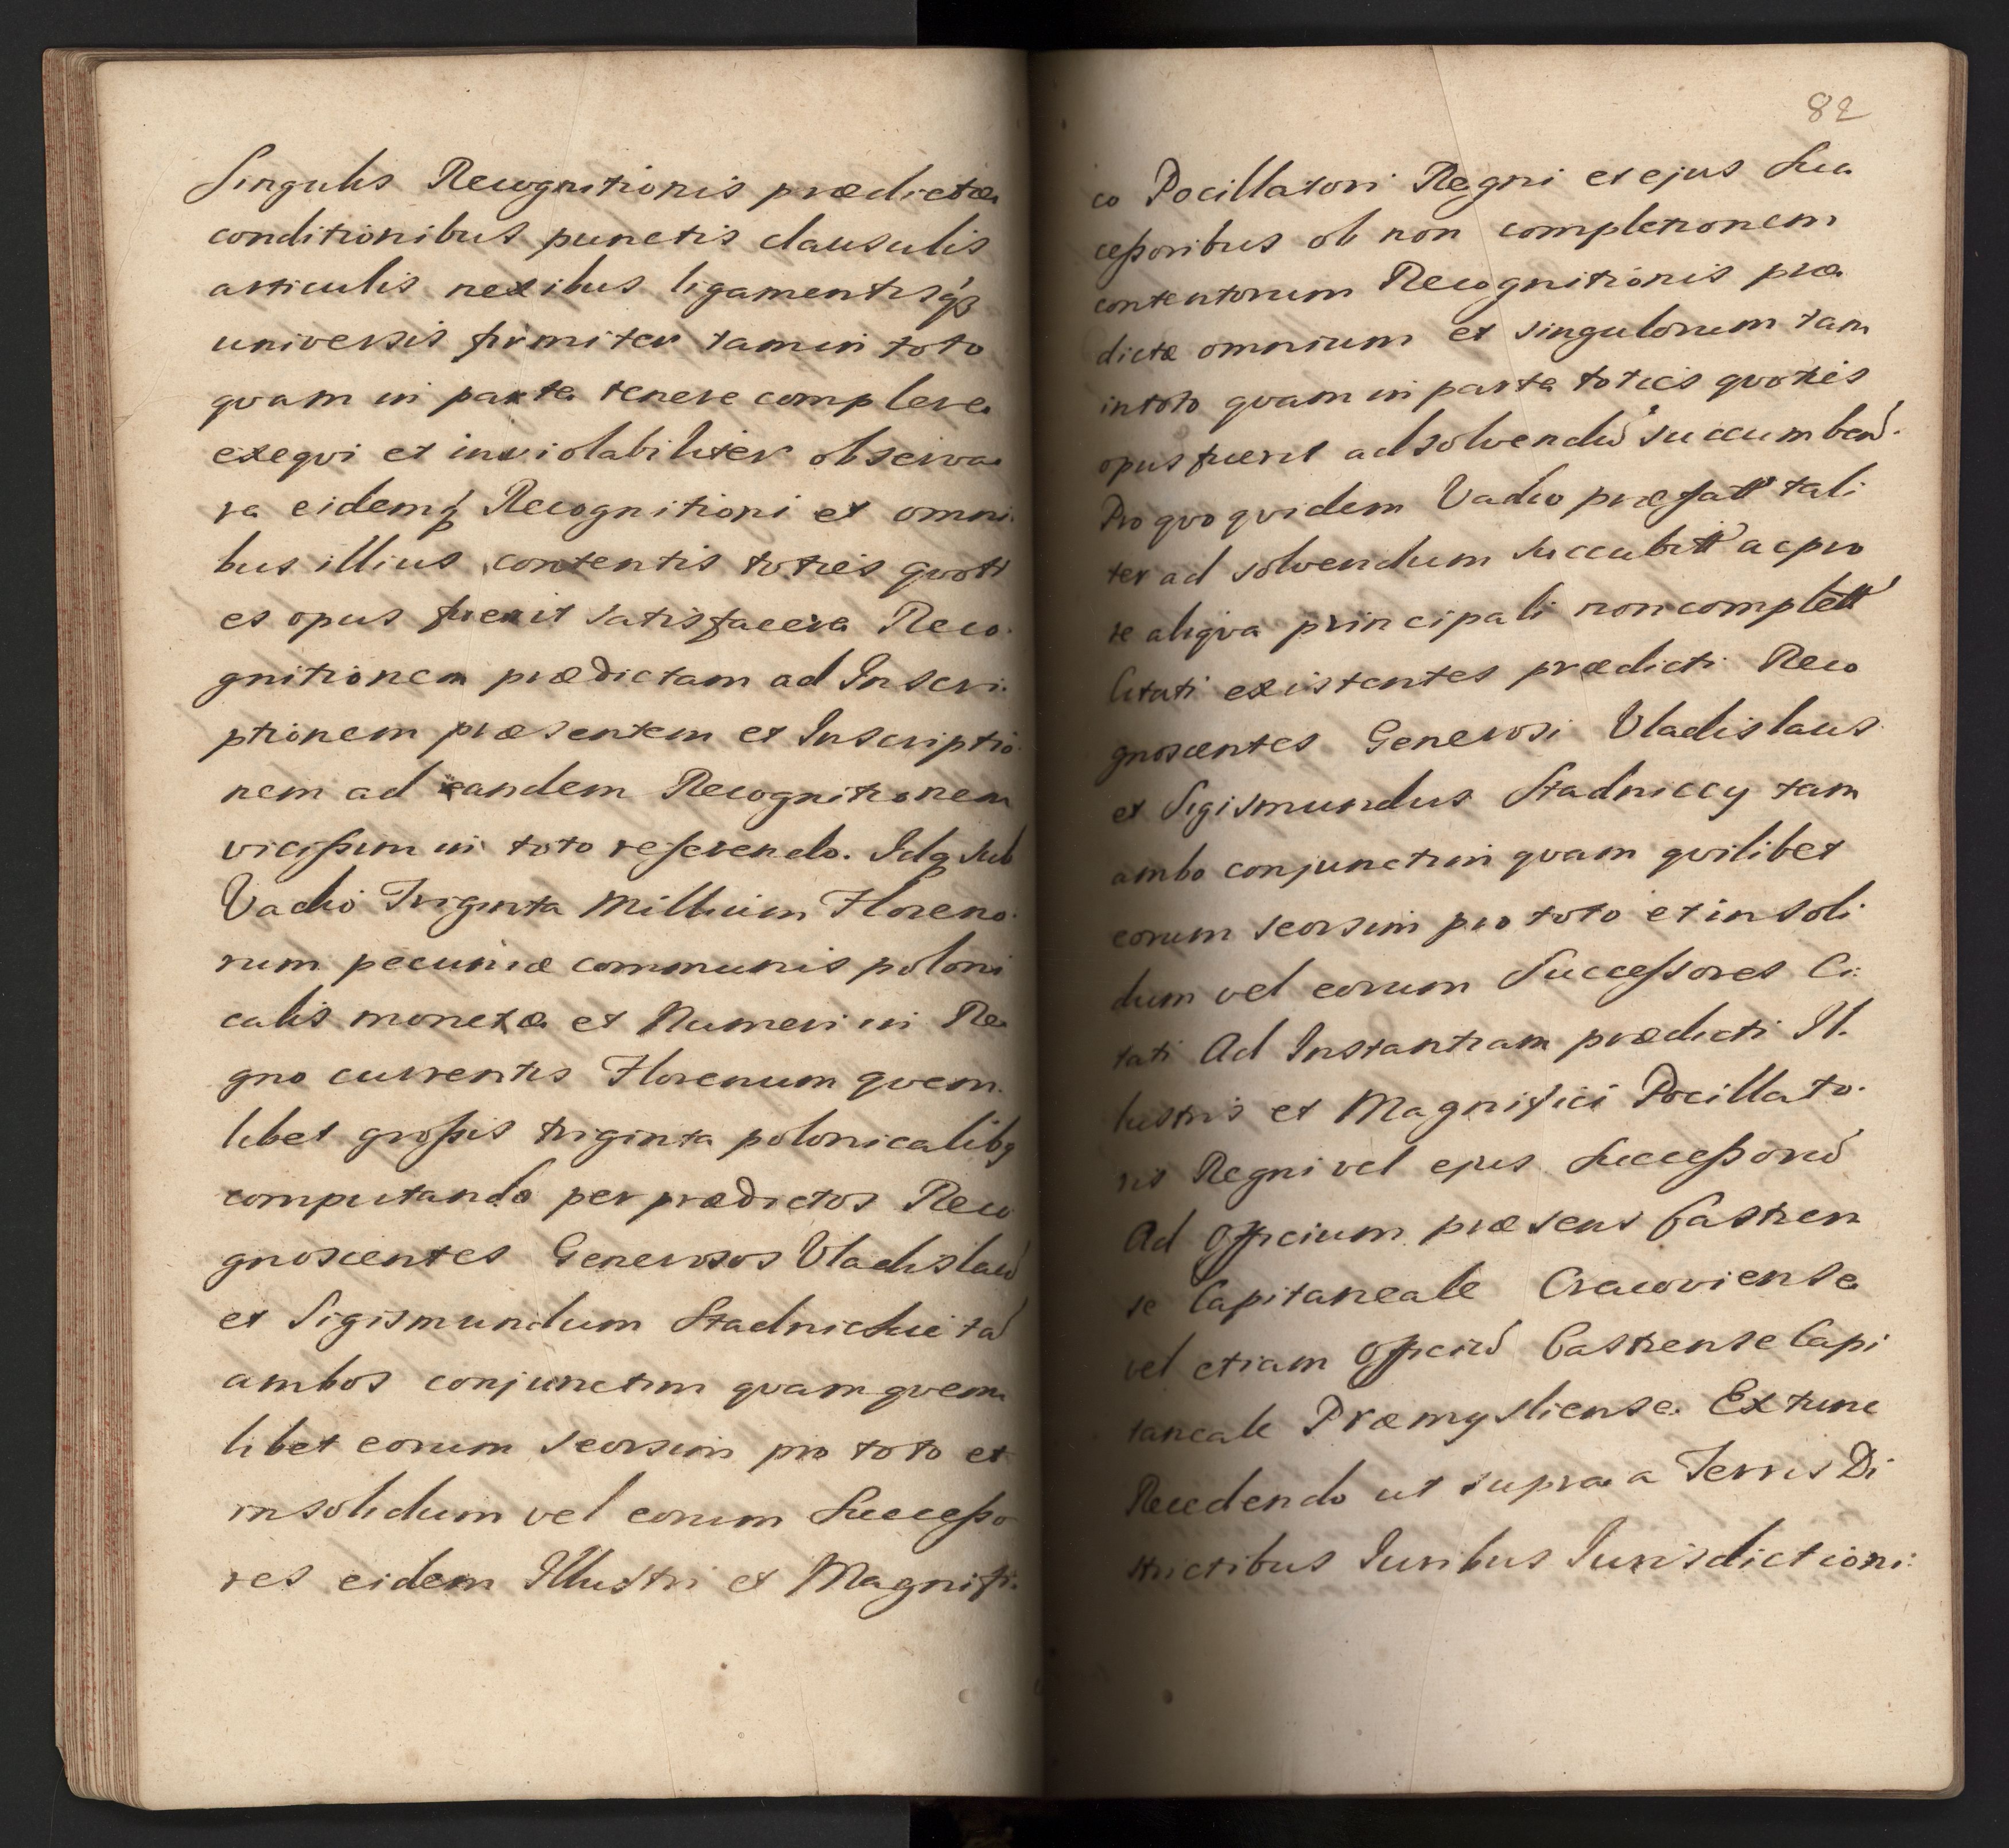 Singulis Recognitionis prædictæ
conditionibus punctis clausulis
articulis nexibus ligamentisq́ꝫ
universis firmiter tam in toto
qvam in parte tenere complere
exeqvi et inviolabiliter observa
re eidemq́ Recognitioni et omni
bus illius contentis toties qvoti
es opus fuerit satisfacere Reco
gnitionem prædictam ad Inscri
ptionem præsentem et Inscriptio
nem ad eandem Recognitionem
vicißim in toto referendo. Idq sub
Vadio Triginta Millium Floreno
rum pecuniæ communis poloni
calis monetæ et Numeri in Re
gno currentis Florenum qvem
libet großis triginta polonicalibq
computando per prædictos Reco
gnoscentes Generosos Vladislaū
et Sigismundum Stadnickie tā
ambos conjunctim qvam qvem
libet eorum seorsim pro toto et
in solidum vel eorum Succeßo
res eidem Illustri et Magnifi
82
co Pocillatori Regni et ejus Suc
ceßoribus ob non completionem
contentorum Recognitionis præ
dictæ omnium et singulorum tam
in toto qvam in parte toties qvoties
opus fuerit ad solvendū succumbend.
Pro qvo qvidem Vadio præfatt tali
ter ad solvendum succubitt ac pro
re aliqva principali non complett
Citati existentes prædicti Reco
gnoscentes Generosi Vladislaus
et Sigismundus Stadniccy tam
ambo conjunctim qvam qvilibet
eorum seorsim pro toto et in soli
dum vel eorum Successores Ci
tati Ad Instantiam prædicti Il
lustris et Magnifici Pocillato
ris Regni vel ejus Succeßorū
Ad Officium præsens Castren
se Capitaneale Cracoviense
vel etiam Officiū Castrense Capi
taneale Præmysliense. Ex tunc
Recedendo ut supra a Terris Di
strictibus Iuribus Iurisdictioni